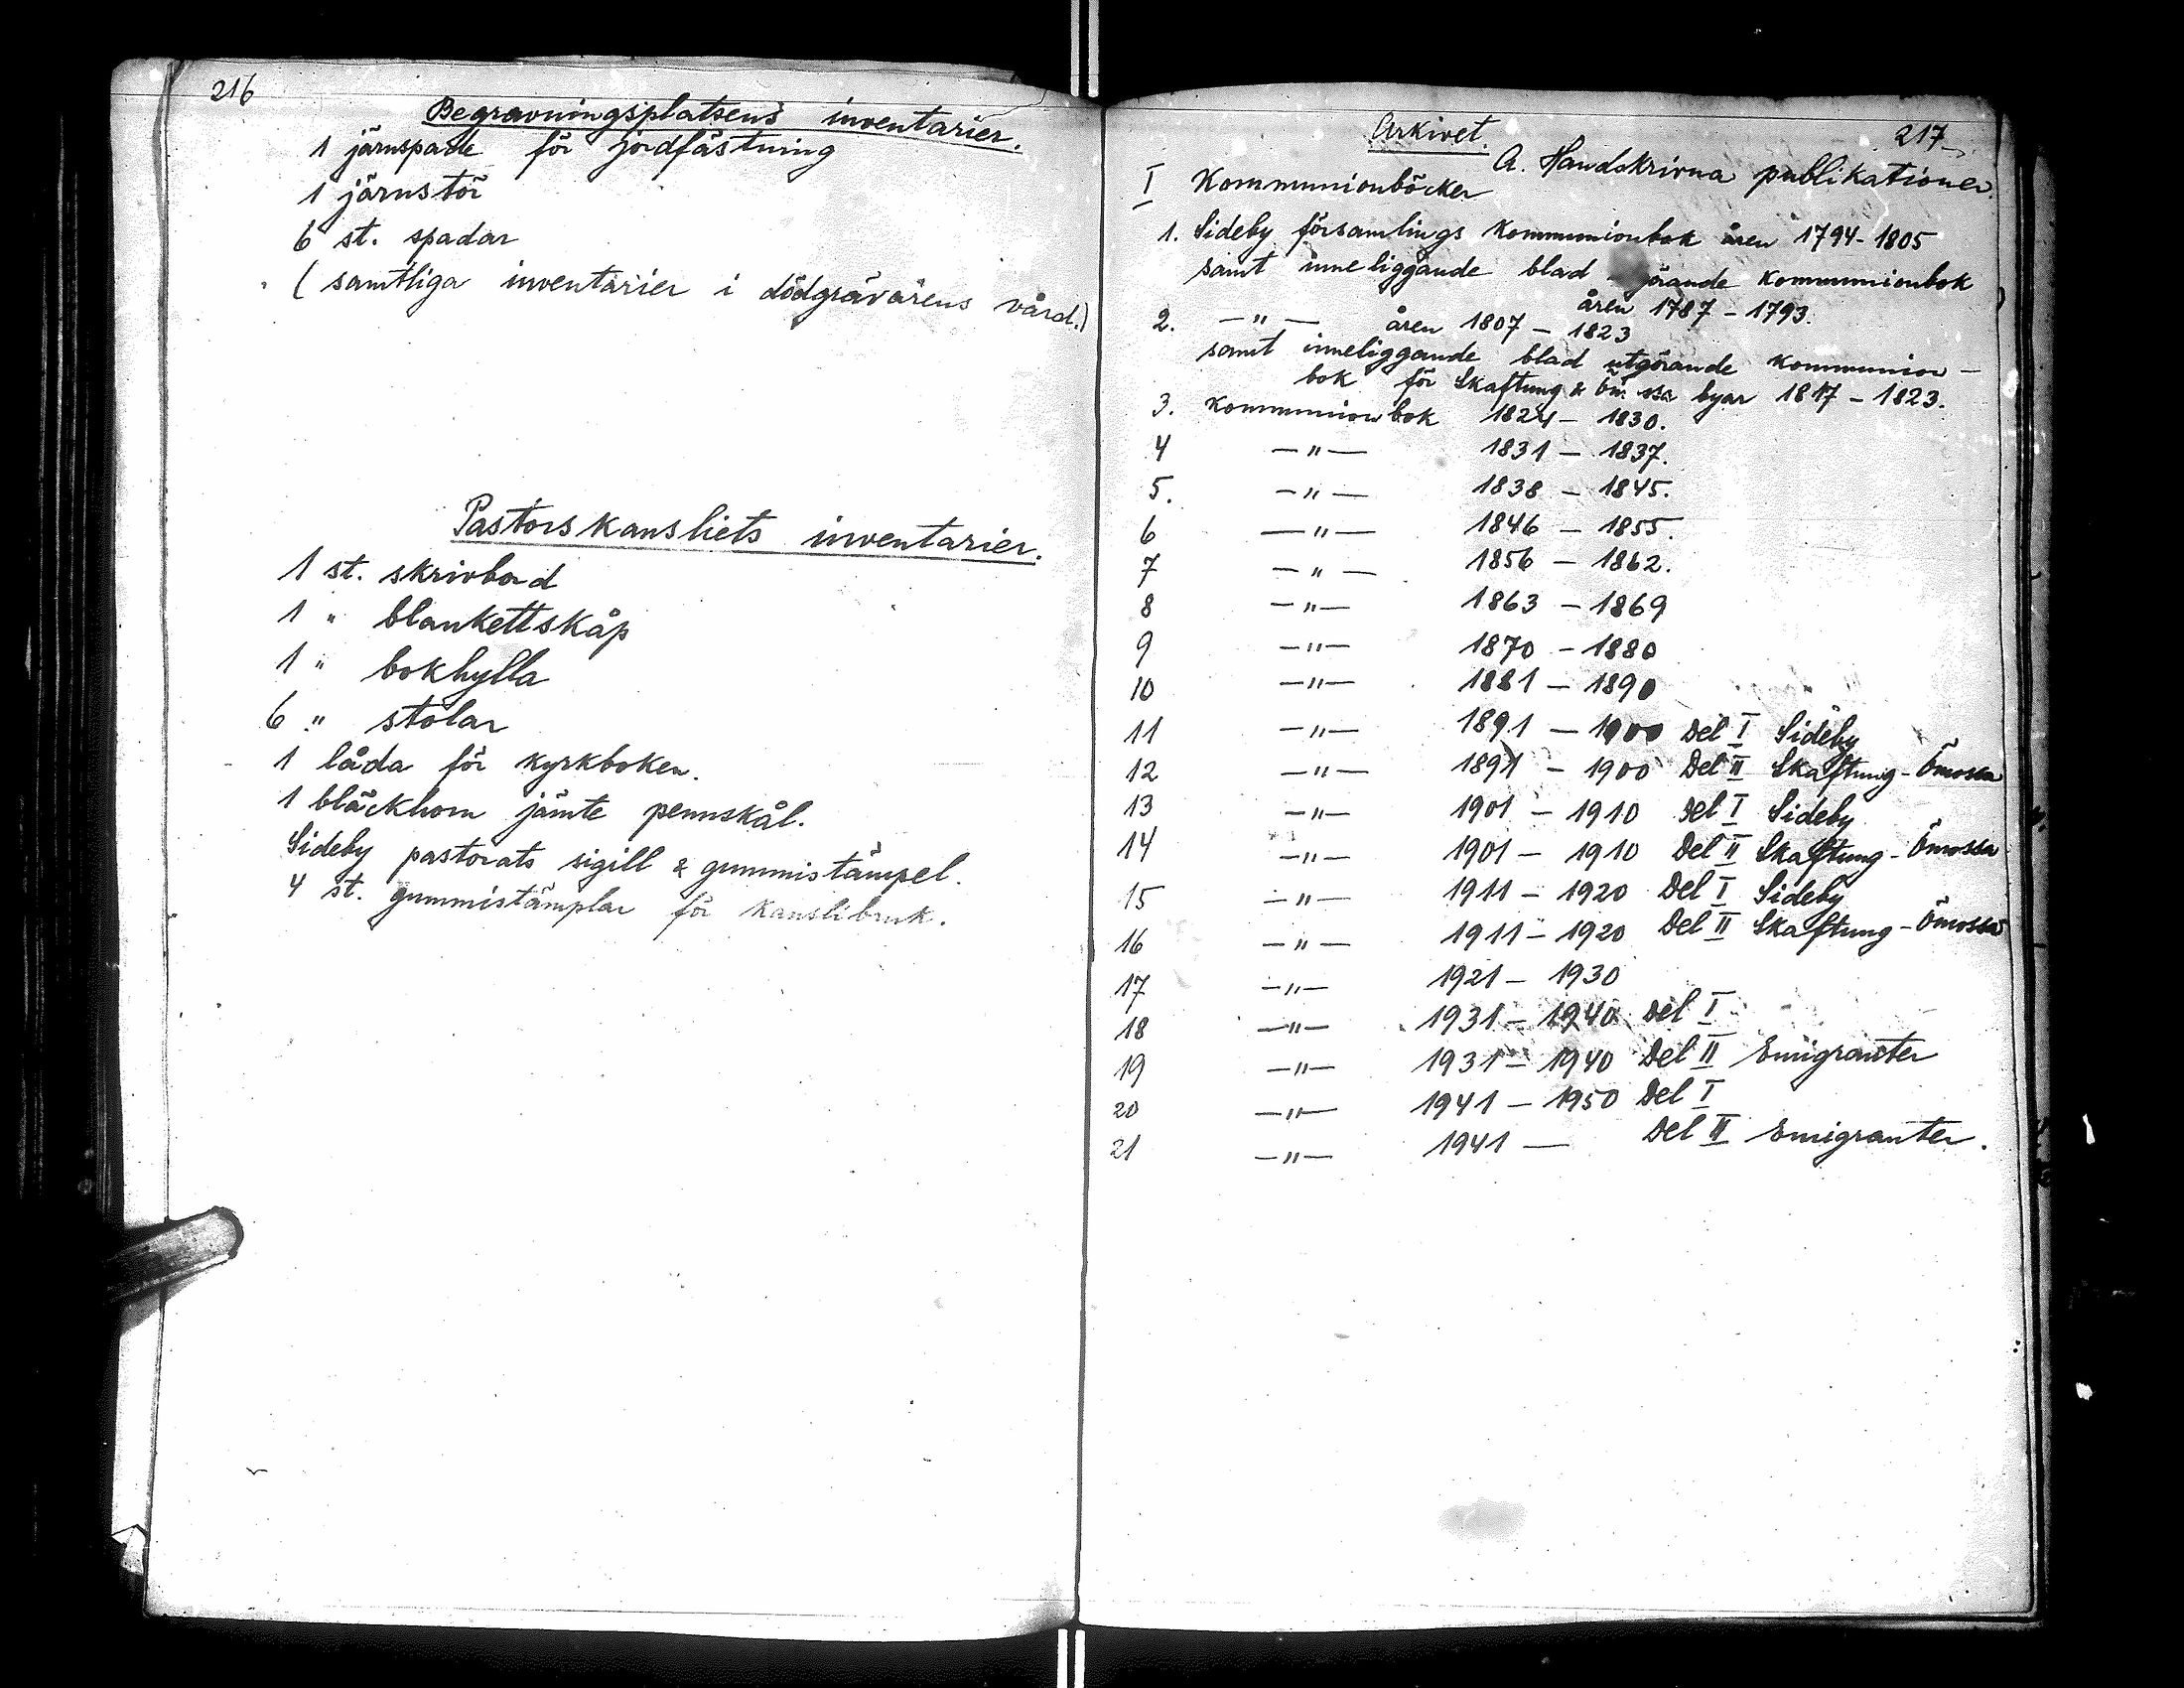 216
Begravningsplatsens inventarier.
1 järnspade för jordfästning
1 järnstör
6 st. spadar
(samtliga inventarier i dödgrävarens vård.)
Pastorskansliets inventarier.
1 st. skrivbord
1 " blankettskåp
1 " bokhylla
6 " stolar
1 låda för kyrkboken.
1 bläckhorn jämte pennskål.
Sideby pastorats sigill & gummistämpel.
4 st. gummistämplar för kanslibruk.
217
Arkivet.
A. Handskrivna publikationer.
I Kommunionböcker
1. Sideby församlings kommunionbok åren 1794-1805
samt inneliggande blad görande kommunionbok
åren 1787 - 1793.
2. —"— åren 1807 - 1823
samt inneliggande blad utgörande kommunion-
bok för Skaftung & Ömossa byar 1817 - 1823.
3. Kommunionbok 1824 - 1830.
4 —"— 1831 - 1837.
5. —"— 1838 - 1845.
6 —"— 1846 - 1855.
7 —"— 1856 - 1862.
8 —"— 1863 - 1869
9 —"— 1870 - 1880
10 —"— 1881 - 1890
11 —"— 1891 - 1900 Del I Sideby
12 —"— 1891 - 1900 Del II Skaftung-Ömossa
13 —"— 1901 - 1910 Del I Sideby
14 —"— 1901 - 1910 Del II Skaftung-Ömossa
15 —"— 1911 - 1920 Del I Sideby
16 —"— 1911 - 1920 Del II Skaftung-Ömossa
17 —"— 1921 - 1930
18 —"— 1931 - 1940 Del I
19 —"— 1931 - 1940 Del II Emigranter
20 —"— 1941 - 1950 Del I
21 —"— 1941 — Del II Emigranter.